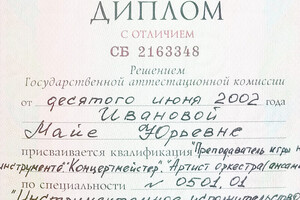 ДИПЛОМ
С ОТЛИЧИЕМ
СБ 2163348
Решением
Государственной аттестационной комиссии
от десятого июня 2002 года
Ивановой
Майе Юрьевне
присваивается квалификация "Преподаватель игры н
инструменте". Концертмейстер. Артист оркестра (ансам
по специальности № 0501.01
"Инструментальное исполнительство